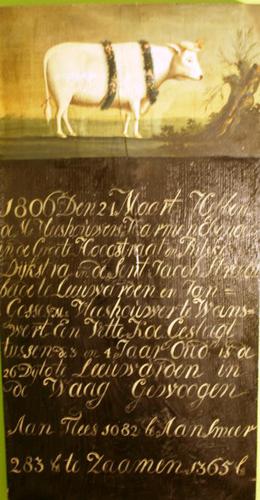 1806 Den 21 Maart Heben
de Mr Vleshouwers Harmen
in de Grote Hoogstraat en Rijsk
Dijkstra in de Sint Jacob Straa
beide te Leeuwarden en Jan
Cosses Mr Vleshouwer te Wans
wert Een Vette Koe Geslagt
tussen de 3 en 4 Jaar Oud is de
26 Dijto te Leeuwarden in
de Waag Gewoogen
Aan Flees 1082 ℔ Aan Smeer
283 ℔ te Zaamen 1365 ℔